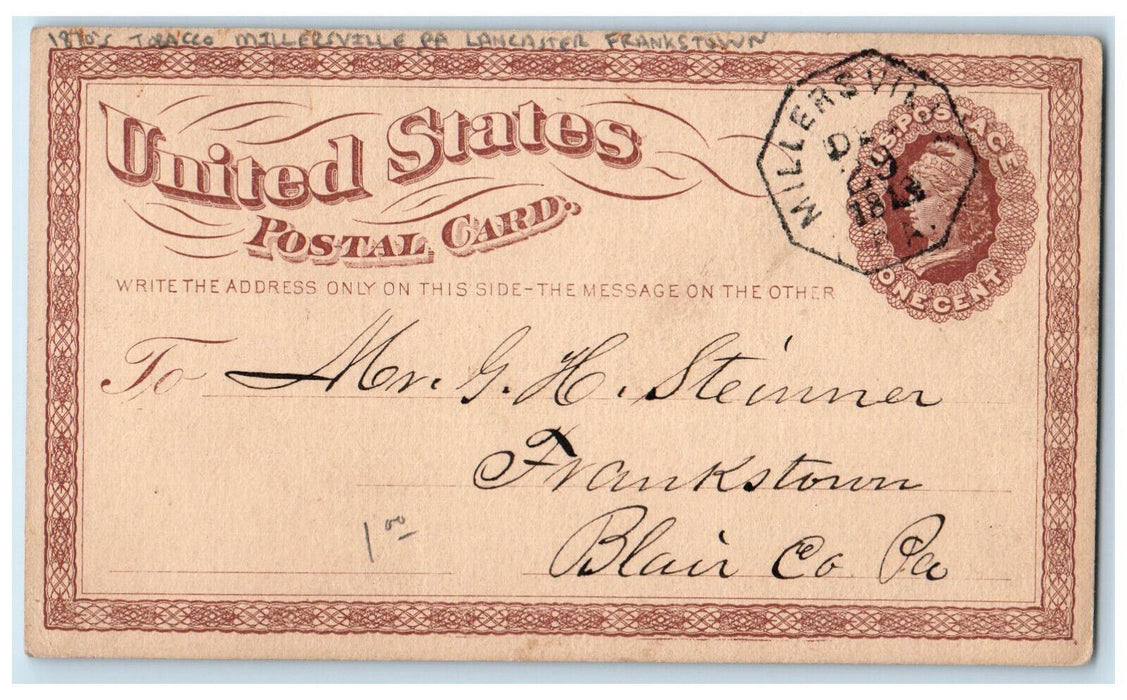 1870's TOBACCO MILLERSVILLE PA LANCASTER FRANKSTOWN
United States
POSTAL CARD.
WRITE THE ADDRESS ONLY ON THIS SIDE-THE MESSAGE ON THE OTHER
MILLERSVILL
PA.
U.S. POSTAGE
ONE CENT
To Mr. G. H. Steinner
Frankstown
Blair Co Pa
1 00